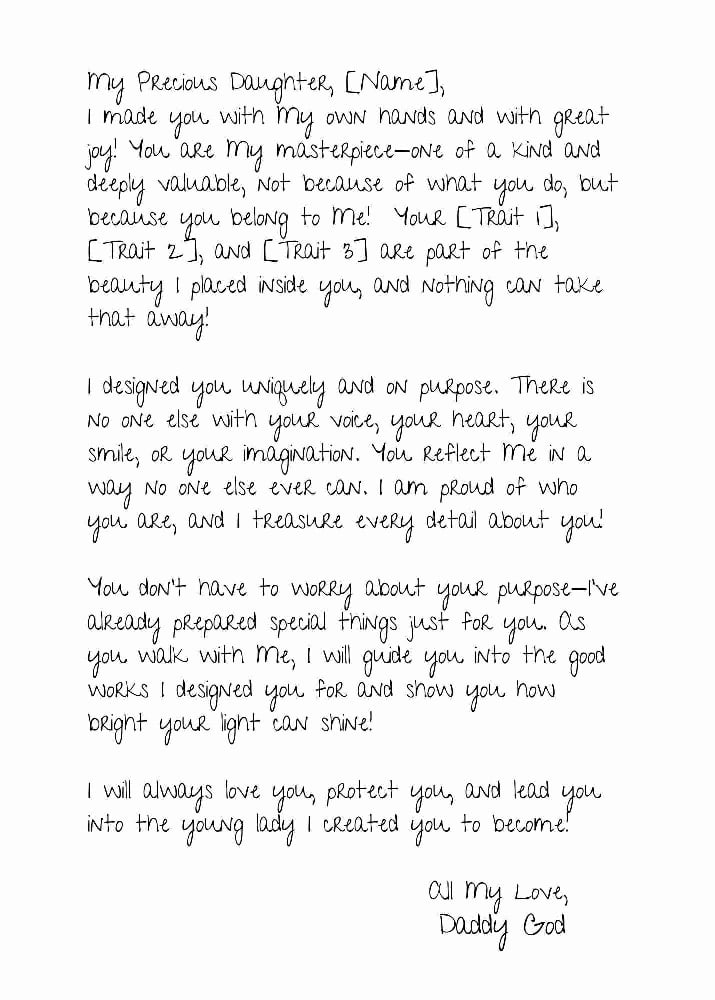 My Precious Daughter, [Name],
I made you with My own hands and with great
joy! You are My masterpiece—one of a kind and
deeply valuable, not because of what you do, but
because you belong to Me! Your [Trait 1],
[Trait 2], and [Trait 3] are part of the
beauty I placed inside you, and nothing can take
that away!
I designed you uniquely and on purpose. There is
no one else with your voice, your heart, your
smile, or your imagination. You reflect Me in a
way no one else ever can. I am proud of who
you are, and I treasure every detail about you!
You don't have to worry about your purpose—I've
already prepared special things just for you. As
you walk with Me, I will guide you into the good
works I designed you for and show you how
bright your light can shine!
I will always love you, protect you, and lead you
into the young lady I created you to become!
All My Love,
Daddy God